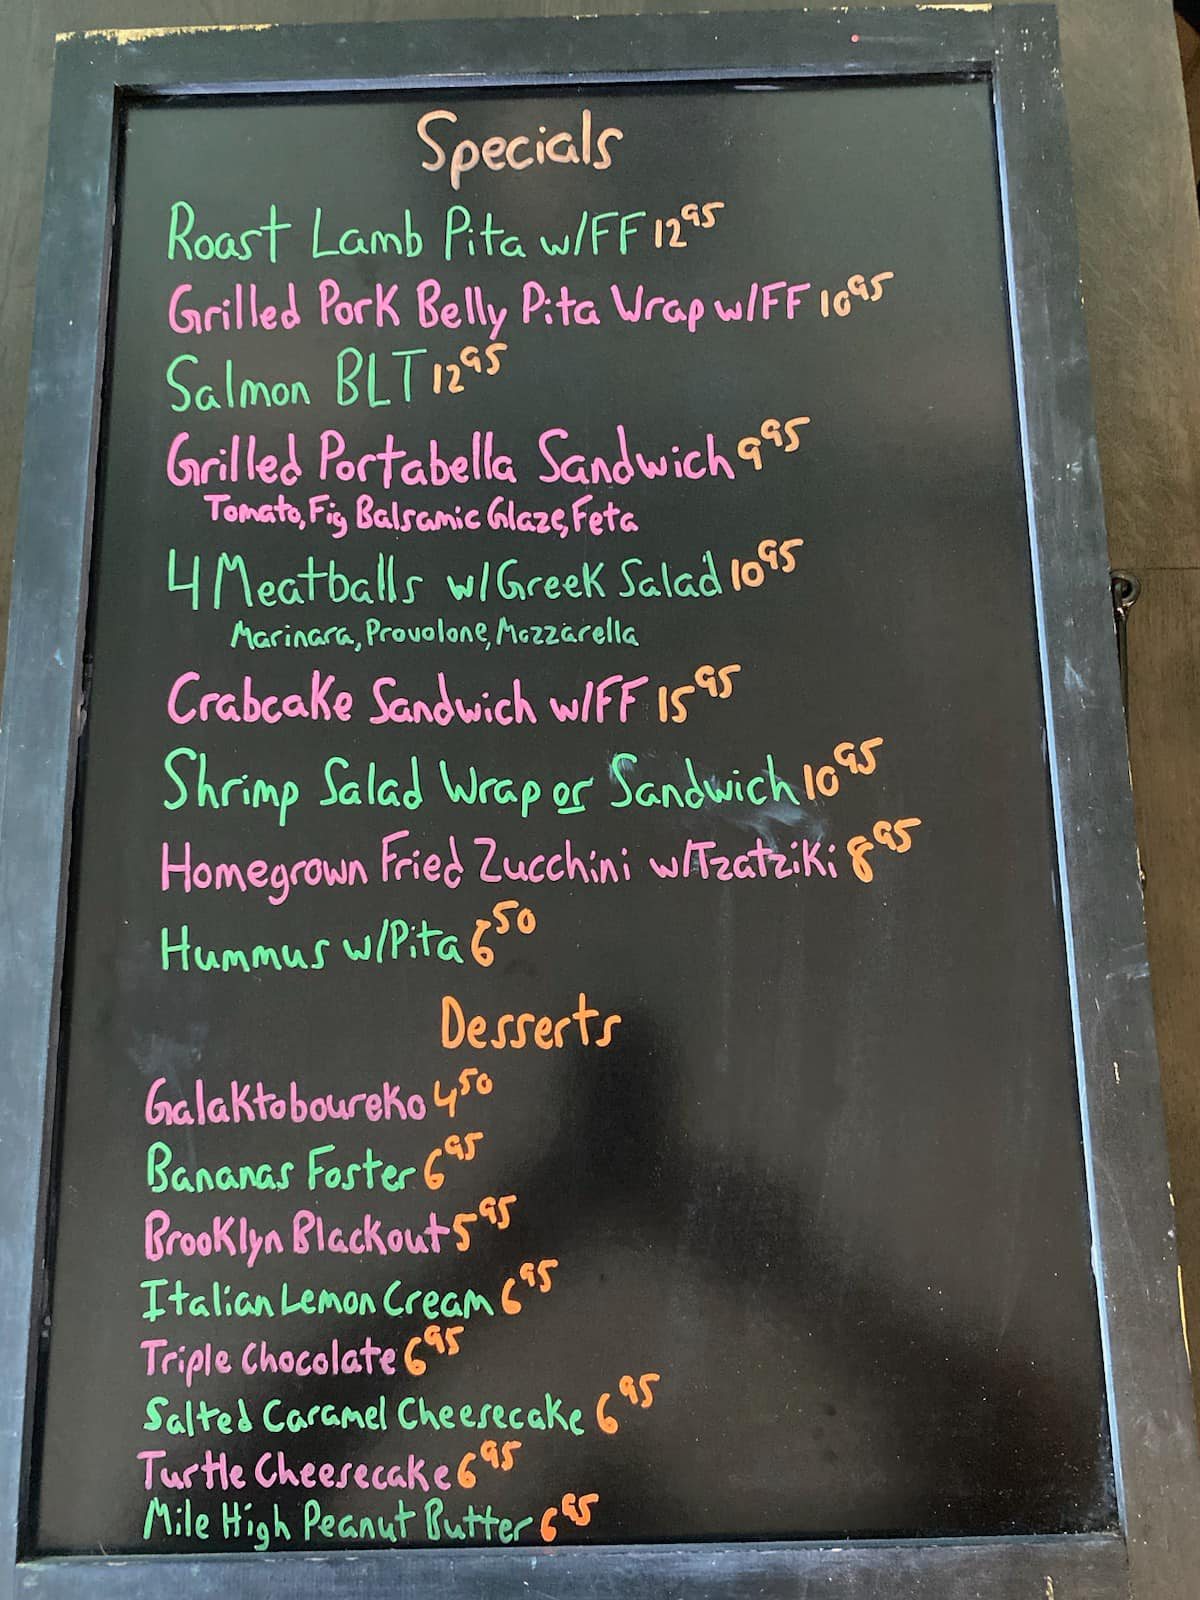 Specials
Roast Lamb Pita w/FF 12⁹⁵
Grilled Pork Belly Pita Wrap w/FF 10⁹⁵
Salmon BLT 12⁹⁵
Grilled Portabella Sandwich 9⁹⁵
Tomato, Fig Balsamic Glaze, Feta
4 Meatballs w/Greek Salad 10⁹⁵
Marinara, Provolone, Mozzarella
Crabcake Sandwich w/FF 15⁹⁵
Shrimp Salad Wrap or Sandwich 10⁹⁵
Homegrown Fried Zucchini w/Tzatziki 8⁹⁵
Hummus w/Pita 6⁵⁰
Desserts
Galaktoboureko 4⁵⁰
Bananas Foster 6⁹⁵
Brooklyn Blackout 5⁹⁵
Italian Lemon Cream 6⁹⁵
Triple Chocolate 6⁹⁵
Salted Caramel Cheesecake 6⁹⁵
Turtle Cheesecake 6⁹⁵
Mile High Peanut Butter 6⁹⁵